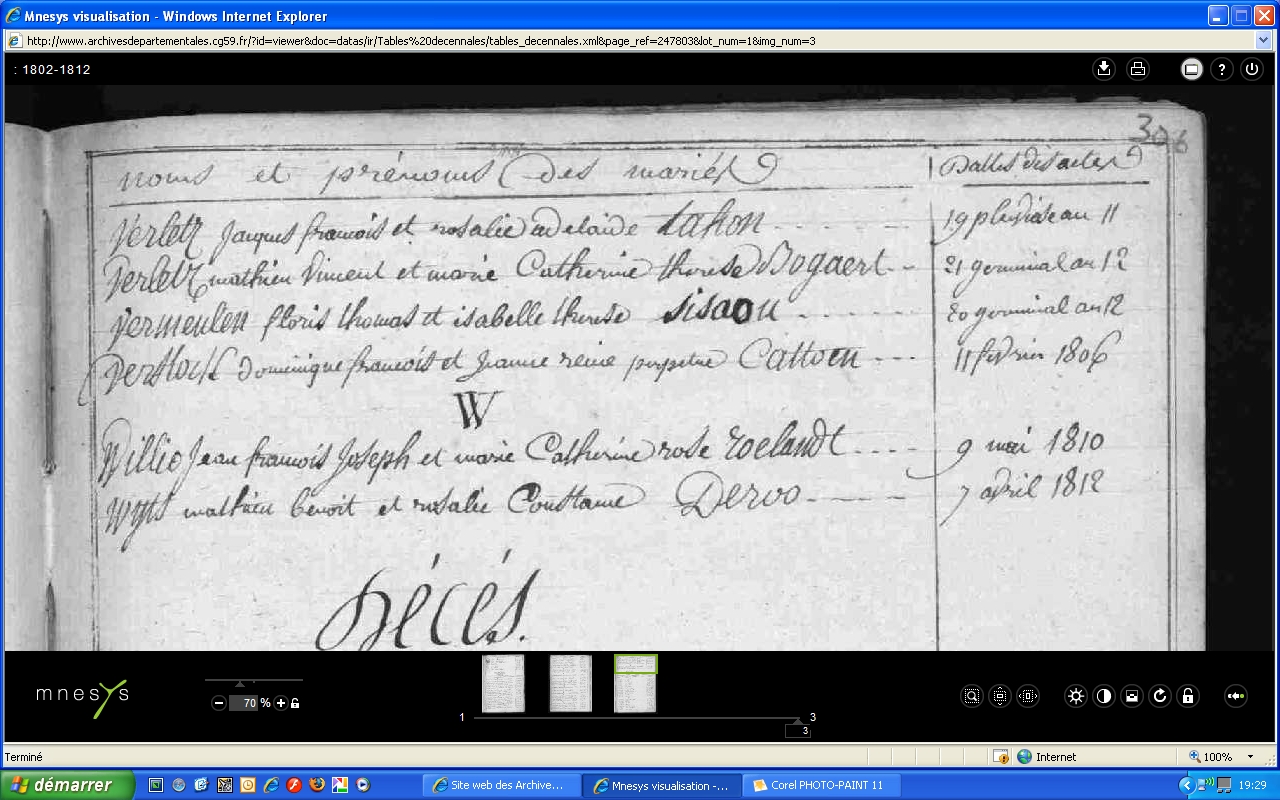 Mnesys visualisation - Windows Internet Explorer
http://www.archivesdepartementales.cg59.fr/?id=viewer&doc=datas/ir/Tables%20decennales/tables_decennales.xml&page_ref=247803&lot_num=1&img_num=3
: 1802-1812
306
noms et prénoms des mariés Dattes des actes
Verletz Jacques francois et rosalie adelaide tahon 19 pluviose an 11
Verletz mathieu Vincent et marie Catherine therese Bogaert 21 germinal an 12
Vermeulen floris thomas et isabelle therese sisaou 20 germinal an 12
dominique francois et jeanne reine perpetue Cattoen 11 fevrier 1806
W
Willio Jean francois Joseph et marie Catherine rose roelandt 9 mai 1810
Wyts mathieu benoit et rosalie Constance Dervo 7 avril 1812
Décés.
mnesys
70 %
1 3
3
Terminé Internet 100%
démarrer Site web des Archive... Mnesys visualisation -... Corel PHOTO-PAINT 11 19:29